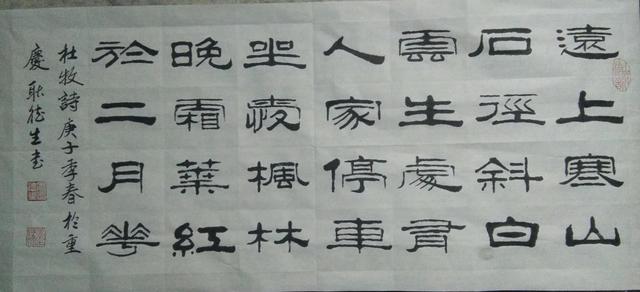 遠上寒山
石徑斜白
雲生處有
人家停車
坐愛楓林
晚霜葉紅
於二月花
杜牧詩庚子季春於重
慶耿德生书